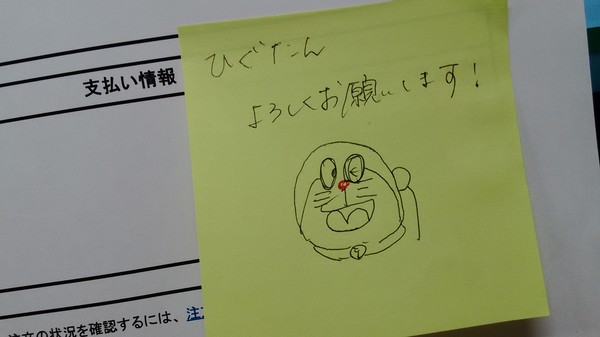 ひぐたん
よろしくお願いします！
支払い情報
注文の状況を確認するには、注